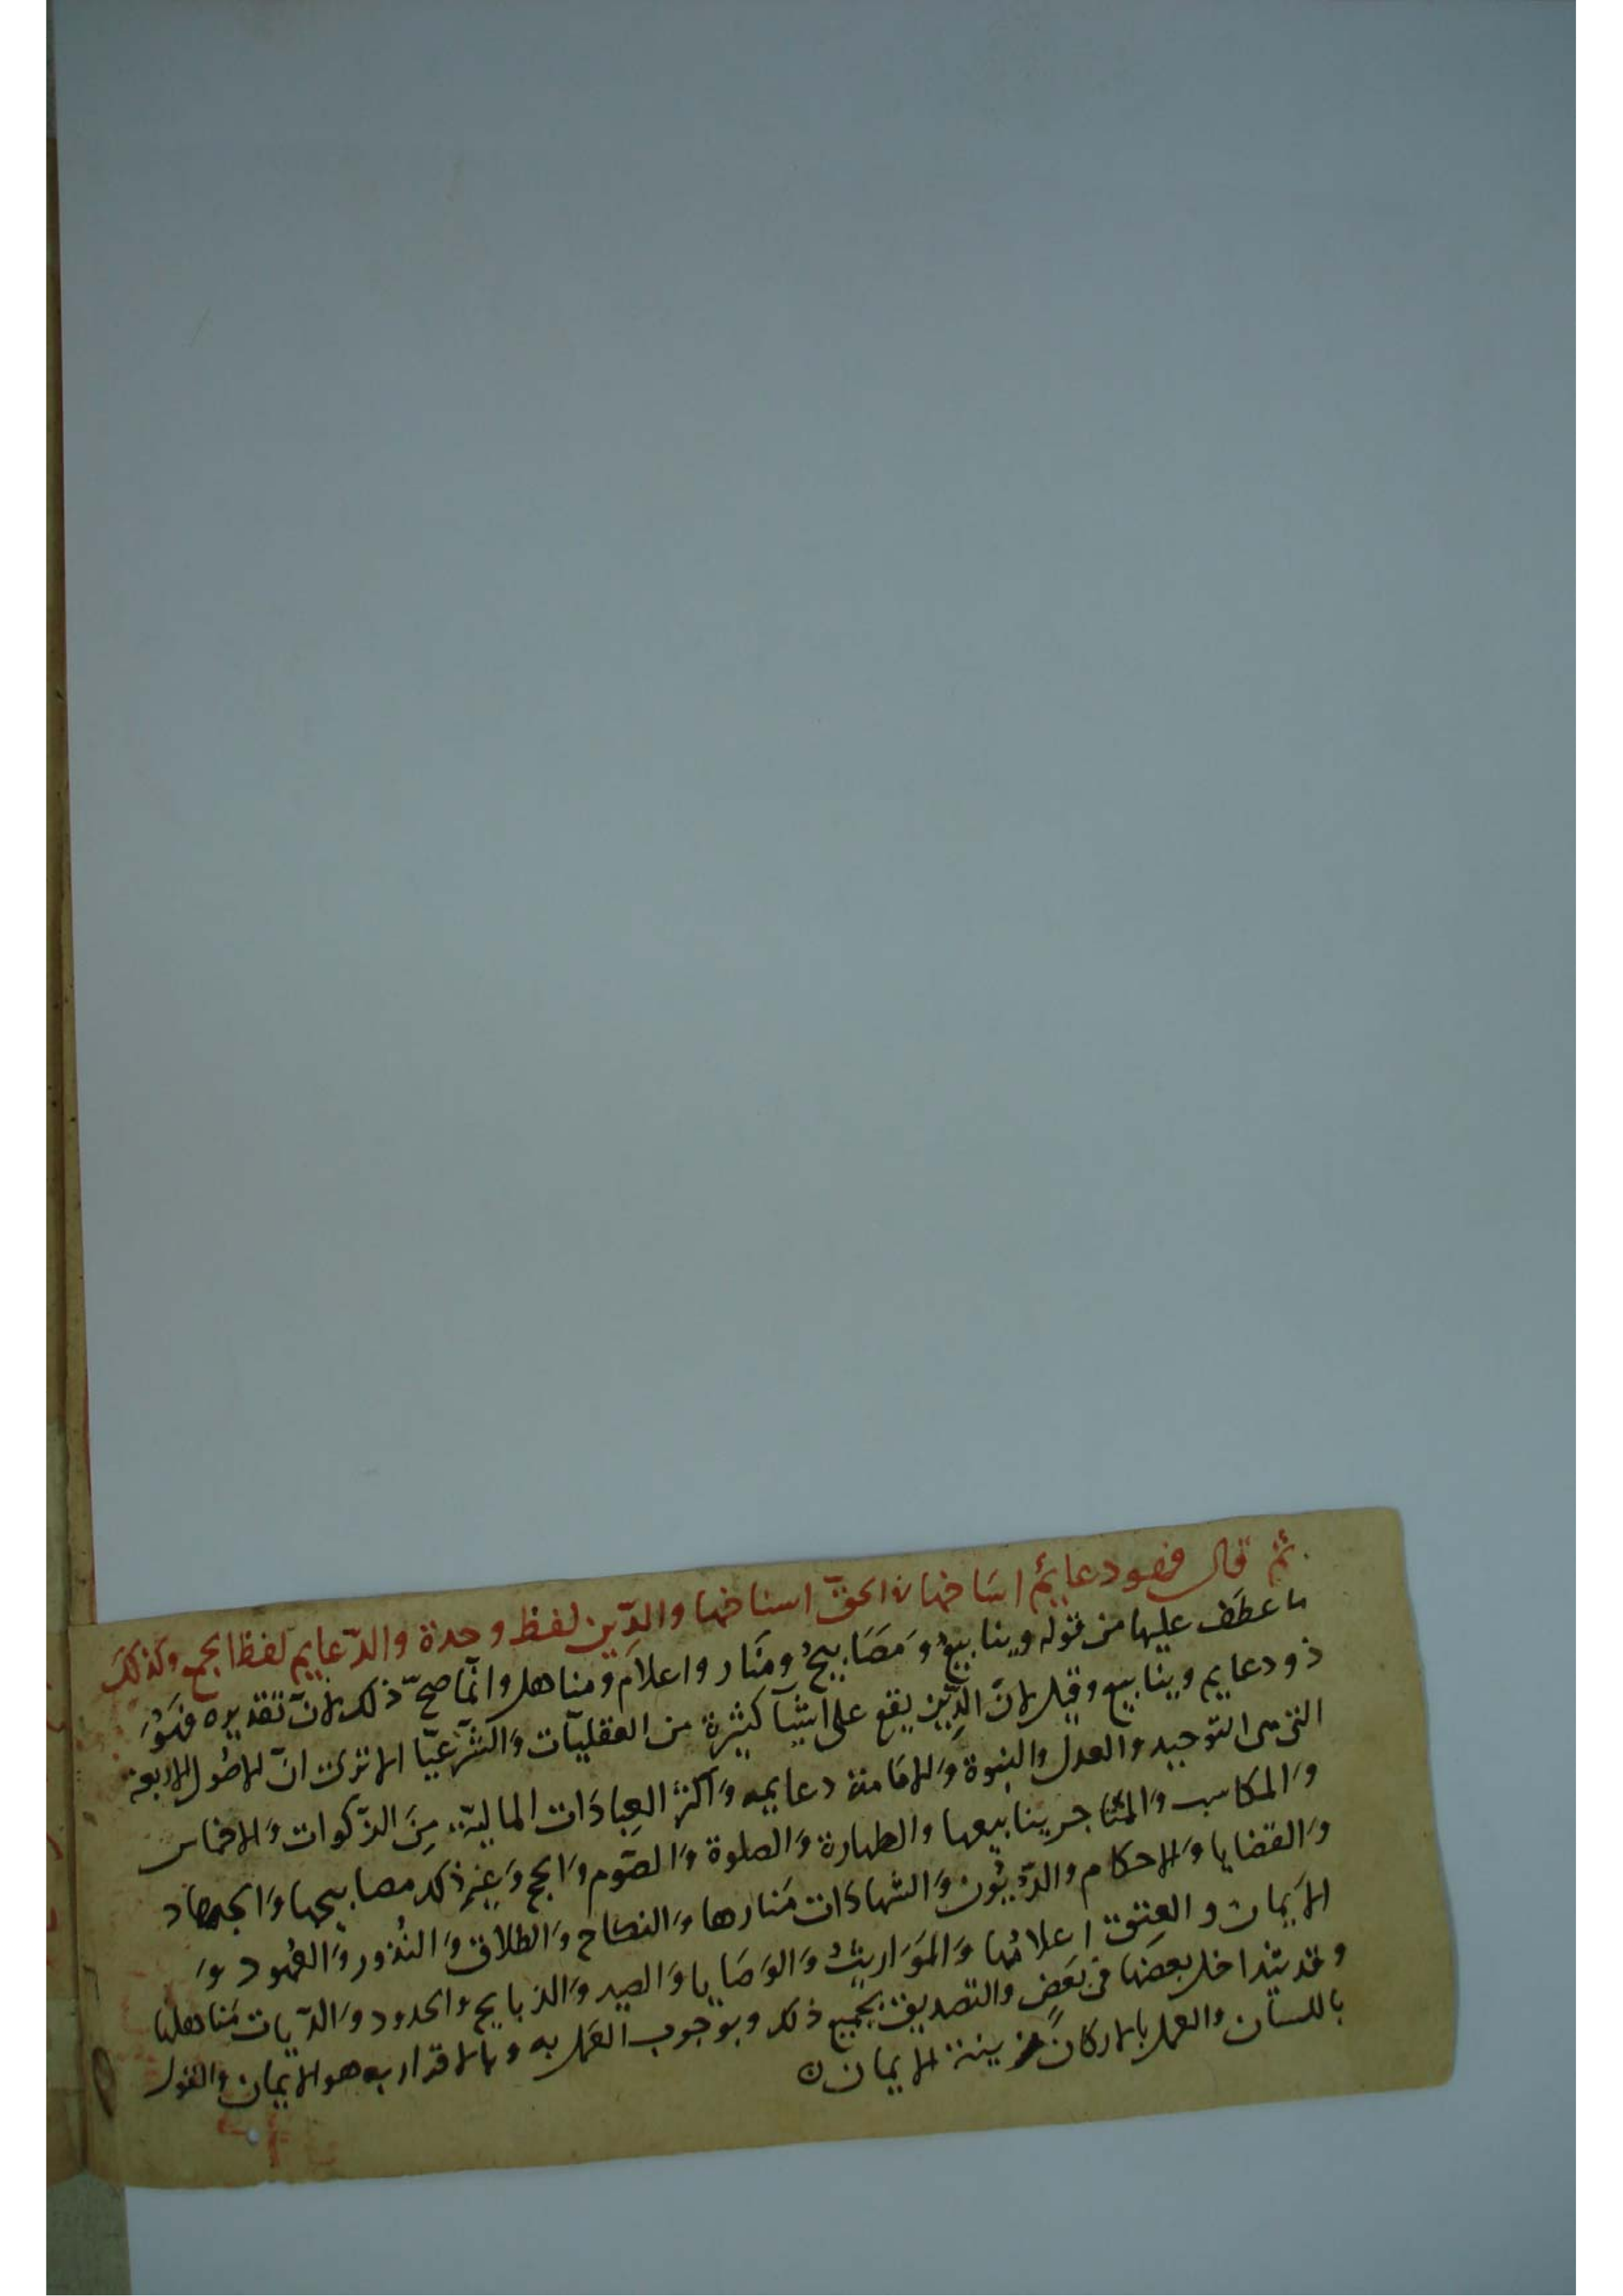 ثم قال فهو دعايم اساخها ن الحق اسناخها والدّين لفظ وحدة والدّعايم لفظ الجمع وكذلك
ما عطف عليها من قوله وينابيعُ ومَصَابيحُ ومنار واعلام ومناهل وانّما صحّ ذلك لانّ تقديره فهُوَ
ذو دعايم وينابيع وقيل لانّ الدِّين يقع على اشيآ كثيرة من العقليّات وَالشرعيّا الا ترى انّ الاصُول الاربعة
التى هى التوحيد والعدل والنبوة وَالامامة دعايمه وَاكثر العِبادَات الماليّة مِنَ الزكوات وَالاخماس
وَالمكاسب وَالمتاجر ينابيعها والطهارة وَالصلوة وَالصَوم وَالحج وَغير ذلك مصابيحها وَالجهاد
وَالقضايا وَالاحكام والدّيُون وَالشهادَات مَنارها وَالنكاح وَالطلاق وَالنُذور وَالعُهود وَ
الايمان و العِتق اعلامُها وَالمَوَاريثُ وَالوَصَايا وَالصيد وَالذبايح وَالحدود وَالدّيات مَناهلها
وقد يتداخل بعضهَا فى بعَض والتصديق بجميع ذلك وبوجوب العَمل به وبالاقرار به هو الايمان والقول
باللسان والعمل بالاركان زينة الايمان ن